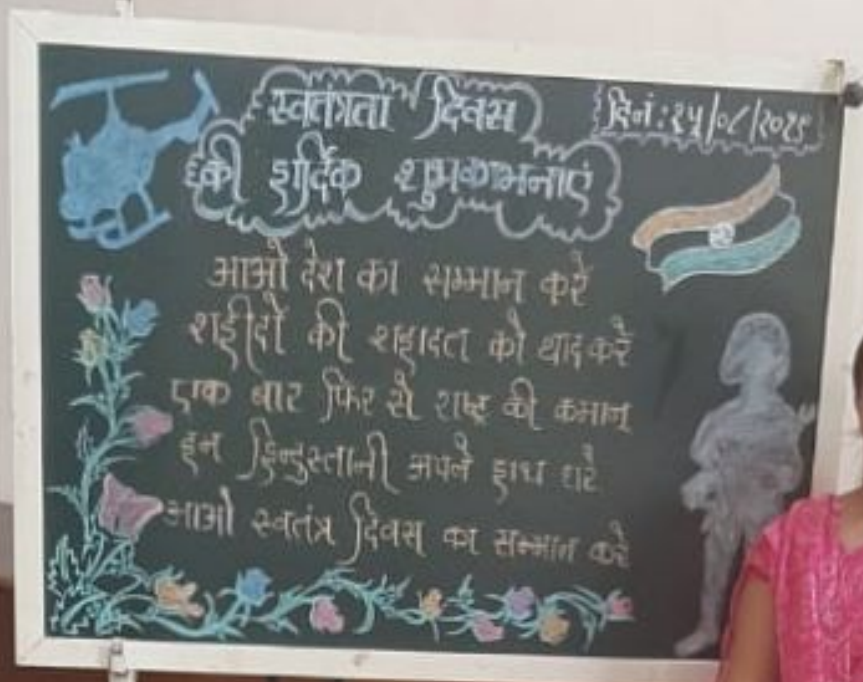 स्वतंत्रता दिवस
की हार्दिक शुभकामनाएं
दिनं : १५/०८/२०१९
आओ देश का सम्मान करें
शहीदों की शहादत को याद करें
एक बार फिर से राष्ट्र की कमान
हम हिन्दुस्तानी अपने हाथ धरे
आओ स्वतंत्र दिवस का सम्मान करे